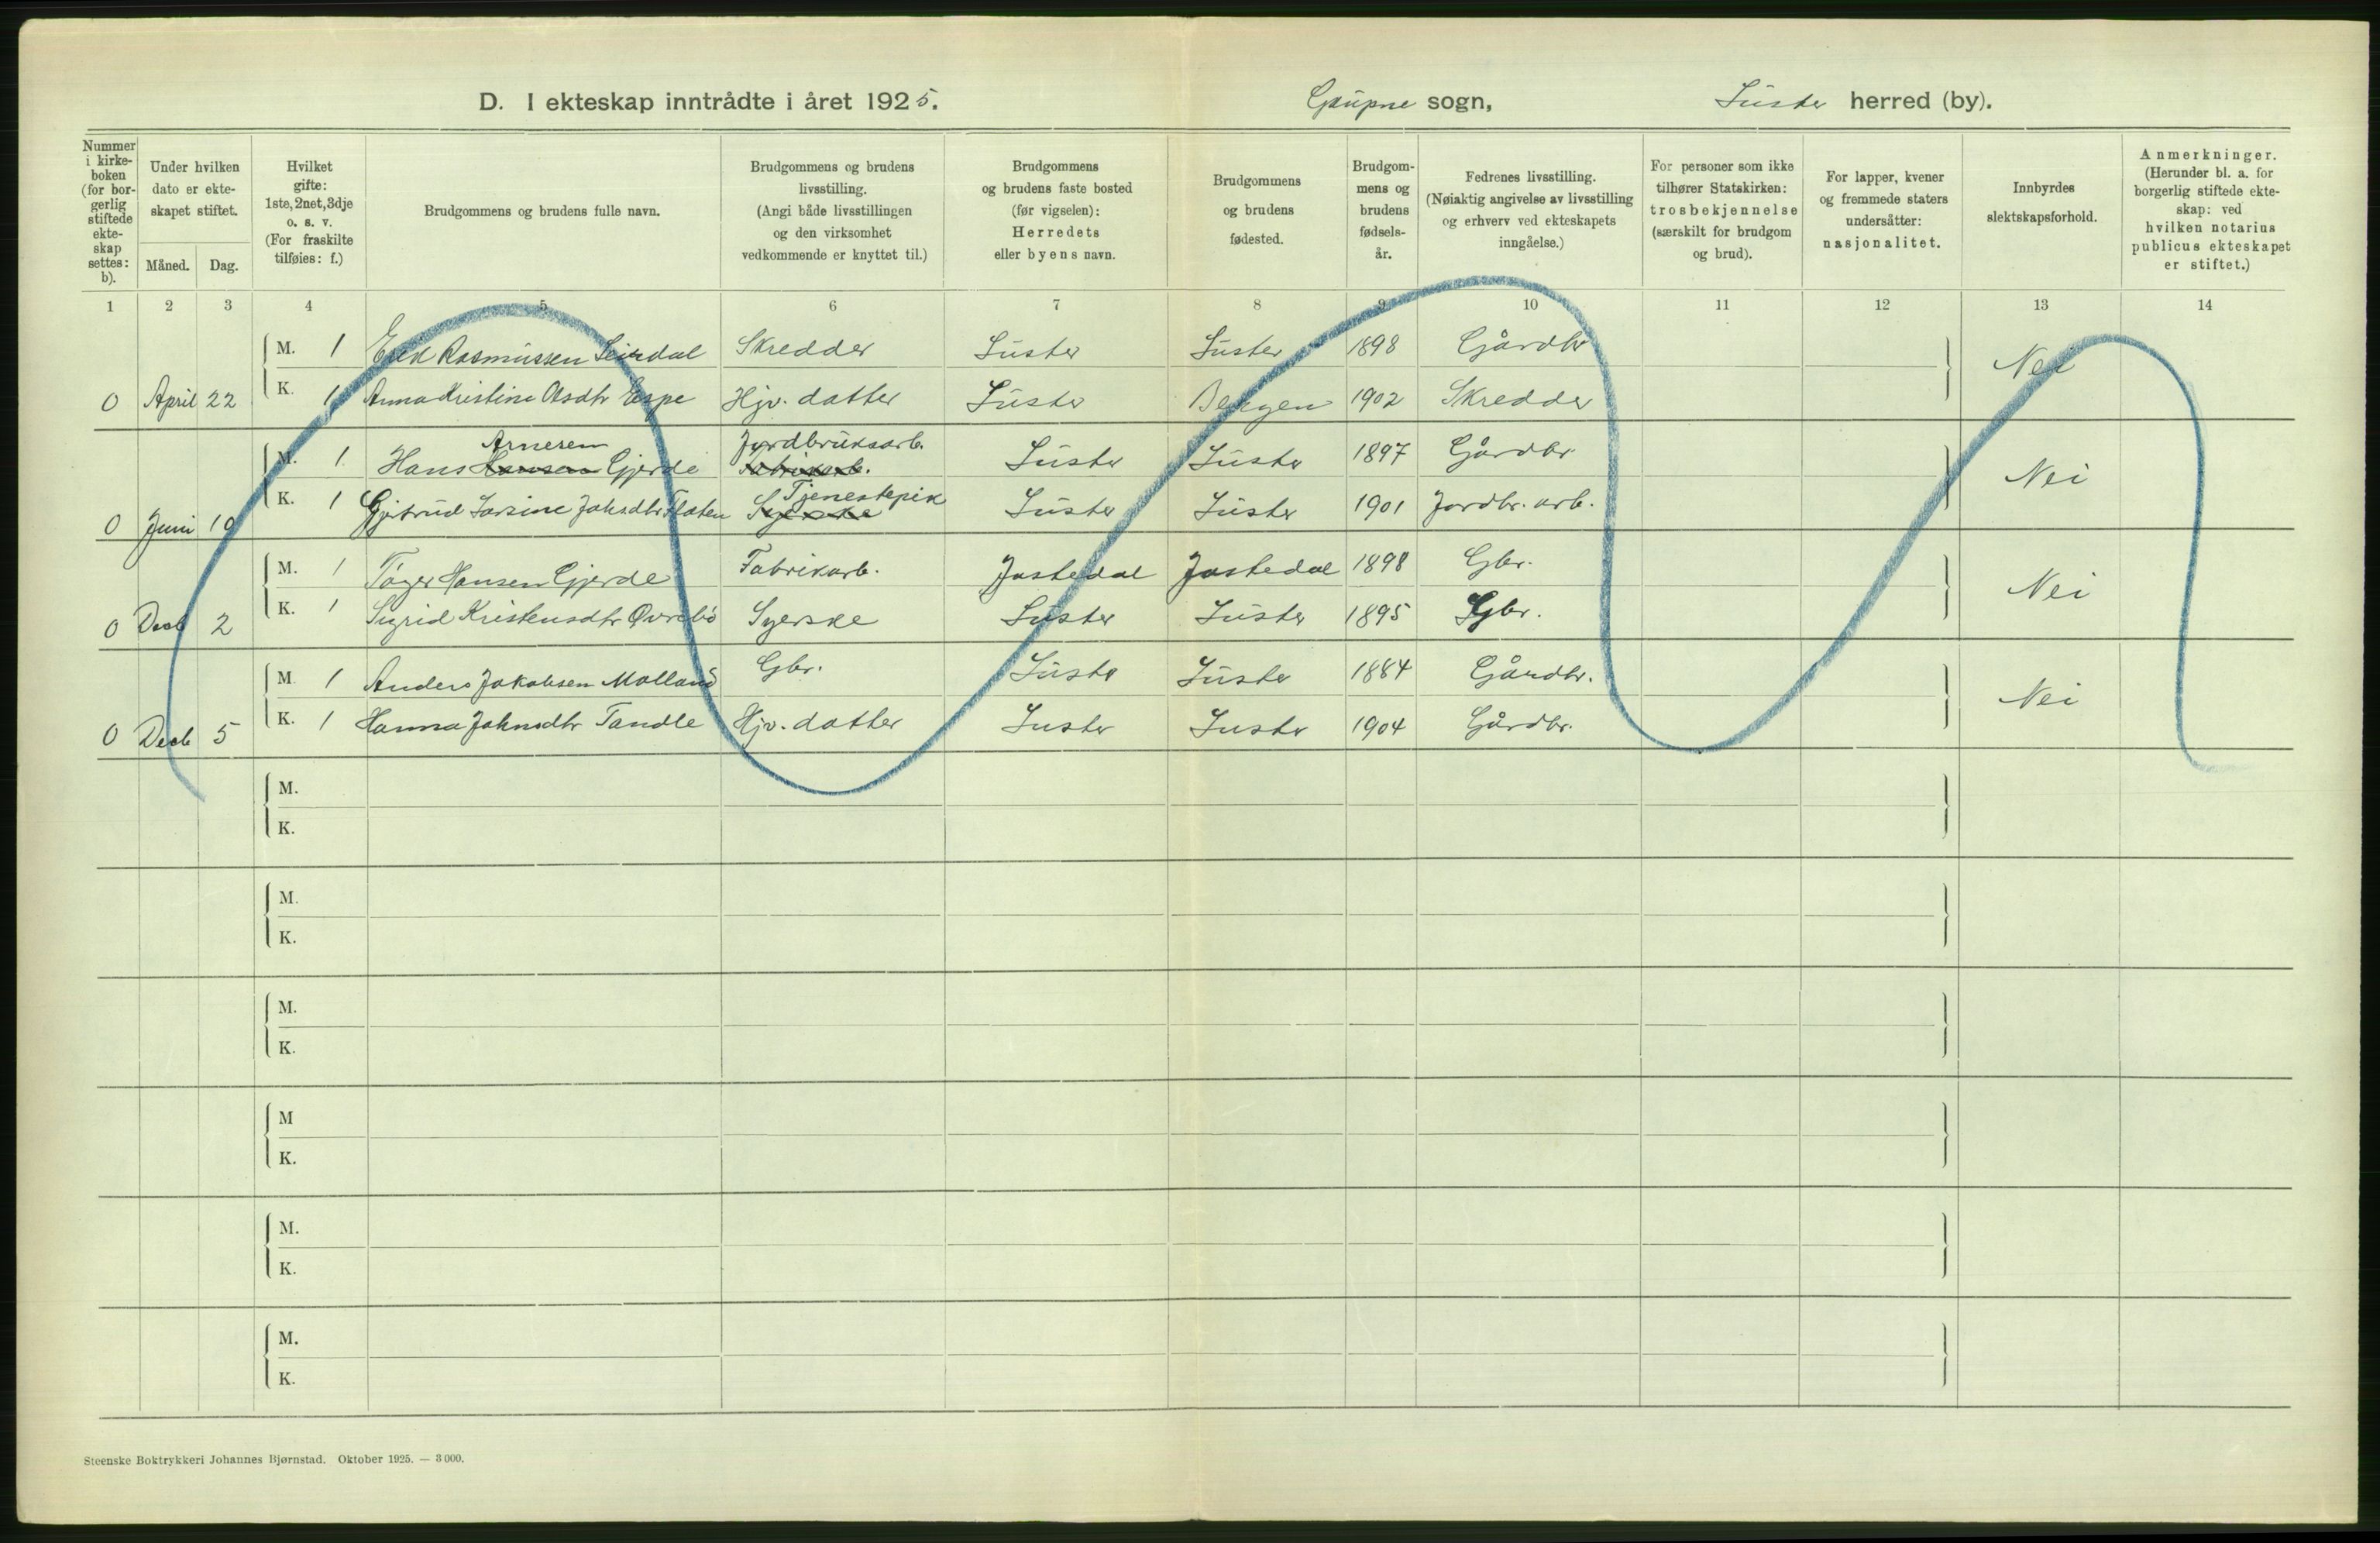 D. I ekteskap inntrådte i året 1925. Gaupne sogn, Luster herred (by).
Nummer i kirke-boken (for bor-gerlig stiftede ekte-skap settes: b).
Under hvilken dato er ekte-skapet stiftet.
Måned. Dag.
Hvilket gifte: 1ste, 2net, 3dje o. s. v. (For fraskilte tilføies: f.)
Brudgommens og brudens fulle navn.
Brudgommens og brudens livsstilling. (Angi både livsstillingen og den virksomhet vedkommende er knyttet til.)
Brudgommens og brudens faste bosted (før vigselen): Herredets eller byens navn.
Brudgommens og brudens fødested.
Brudgom-mens og brudens fødsels-år.
Fedrenes livsstilling. (Nøiaktig angivelse av livsstilling og erhverv ved ekteskapets inngåelse.)
For personer som ikke tilhører Statskirken: trosbekjennelse (særskilt for brudgom og brud).
For lapper, kvener og fremmede staters undersåtter: nasjonalitet.
Innbyrdes slektskapsforhold.
Anmerkninger. (Herunder bl. a. for borgerlig stiftede ekte-skap: ved hvilken notarius publicus ekteskapet er stiftet.)
1 2 3 4 5 6 7 8 9 10 11 12 13 14
M. 1 Erik Rasmussen Leirdal Skredder Luster Luster 1898 Gårdbr Nei
0 April 22 K. 1 Anna Kristine Olsdtr Espe Hjv. datter Luster Bergen 1902 Skredder
Arnesen Jordbruksarb.
M. 1 Hans Hansen Gjerde Fabrikarb. Luster Luster 1897 Gårdbr. Nei
Tjenestepik
0 Juni 10 K. 1 Gjertrud Larsine Johsdtr Flaten Syerske Luster Luster 1901 Jordbr. arb.
M. 1 Tøger Hansen Gjerde Fabrikarb. Jostedal Jostedal 1898 Gbr. Nei
0 Decb 2 K. 1 Sigrid Kristensdtr Øvrebö Syerske Luster Luster 1895 Gbr.
M 1 Anders Jakobsen Molland Gbr. Luster Luster 1884 Gårdbr. Nei
0 Decb 5 K. 1 Hanna Johnsdtr Tandle Hjv. datter Luster Luster 1904 Gårdbr.
M.
K.
M.
K.
M.
K.
M
K.
M.
K.
M.
K.
Steenske Boktrykkeri Johannes Bjørnstad. Oktober 1925. — 3 000.